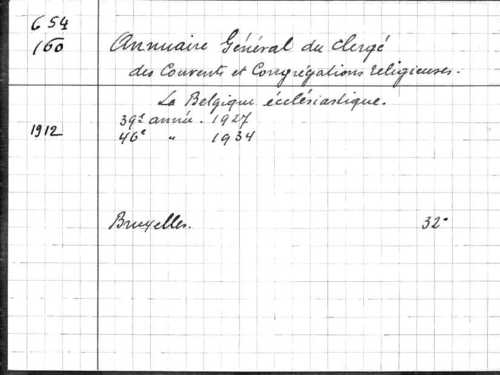 654
160
Annuaire Général du Clergé
des Couvents et Congrégations religieuses.
La Belgique écclésiastique.
39e année. 1927
1912
46e " 1934
Bruxelles.
32°